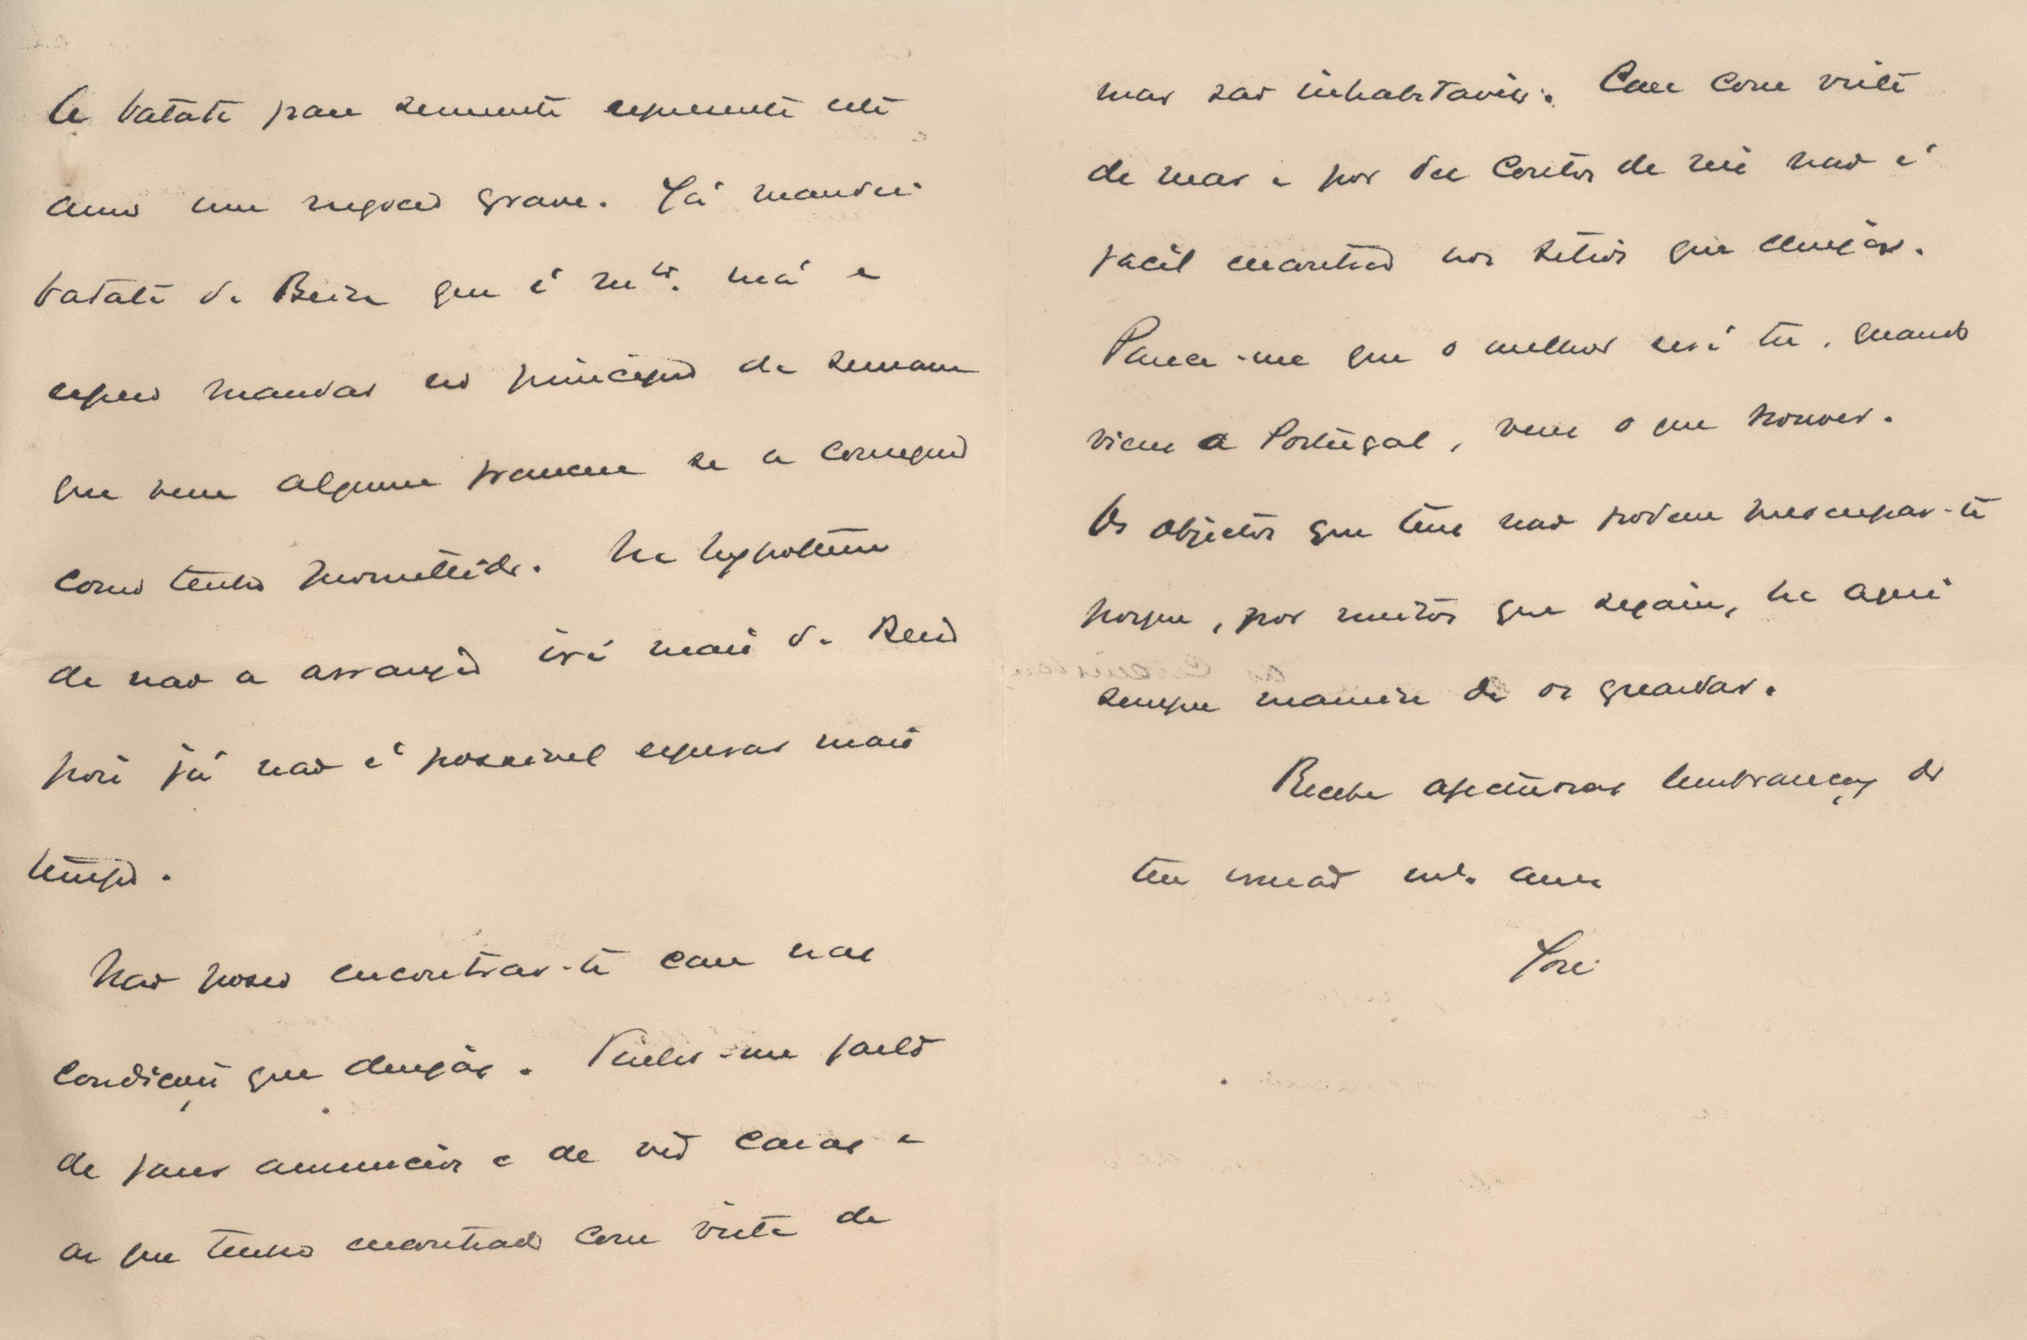 A batata para semente representa este
anno um negocio grave. Já mandei
batata da Beira que é mto. má e
espero mandar no principio da semana
que vem alguma franceza se a consegui
como tenho promettido. Na hypothese
de não a arranjar irá mais da Beira
pois já não é possivel esperar mais
tempo.
Não posso encontrar-te casa nas
condições que desejas. Tenho-me farto
de pôr annuncios e de vêr casas e
as que tenho encontrado com vista de
mar são inhabitaveis. Casa com vista
de mar e por dez contos de reis não é
facil encontrar nos sitios que desejas.
Parece-me que o melhor será tu, quando
vieres a Portugal, veres o que houver.
Os objectos que tens não podem preocupar-te
porque, por muitos que sejam, ha aqui
sempre maneira de os guardar.
Recebe affectuosas lembranças do
teu irmão mto. amo
José